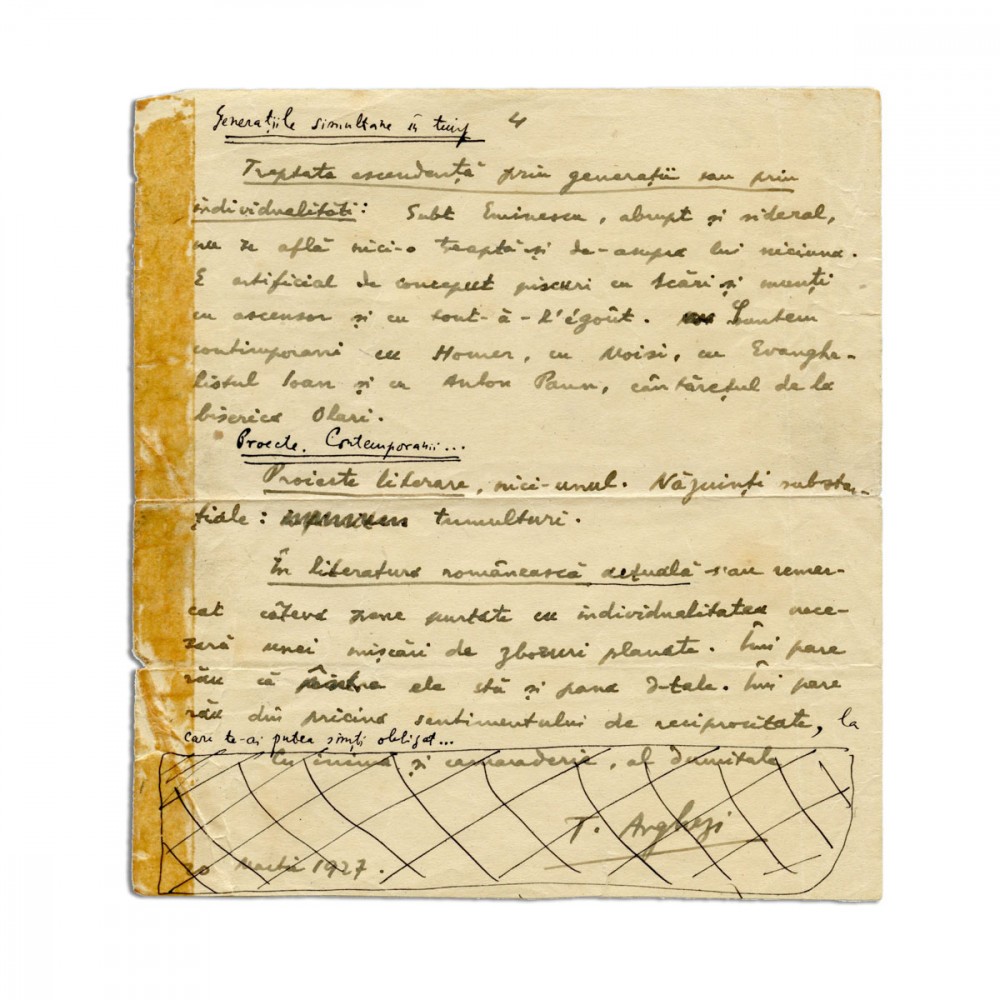 Generațiile simultane în timp 4
Treptata ascendență prin generații sau prin
individualități: Subt Eminescu, abrupt și sideral,
nu se află nici-o treaptă și de-asupra lui niciuna.
E artificial de conceput piscuri cu scări și munți
cu ascensor și cu tout-à-l'égoût. Suntem
contimporani cu Homer, cu Moisi, cu Evanghe-
listul Ioan și cu Anton Pann, cântărețul de la
biserica Olari.
Proecte. Contemporanii...
Proiecte literare, nici-unul. Năzuinți substan-
țiale: tumulturi.
În literatura românească actuală s'au remer-
cat câteva pene purtate cu individualitatea nece-
sară unei mișcări de zboruri planate. Îmi pare
rău că printre ele stă și pana d-tale. Îmi pare
rău din pricina sentimentului de reciprocitate, la
care te-ai putea simți obligat...
Cu inimă și camaraderie, al dumitale
T. Arghezi
20 Martie 1927.